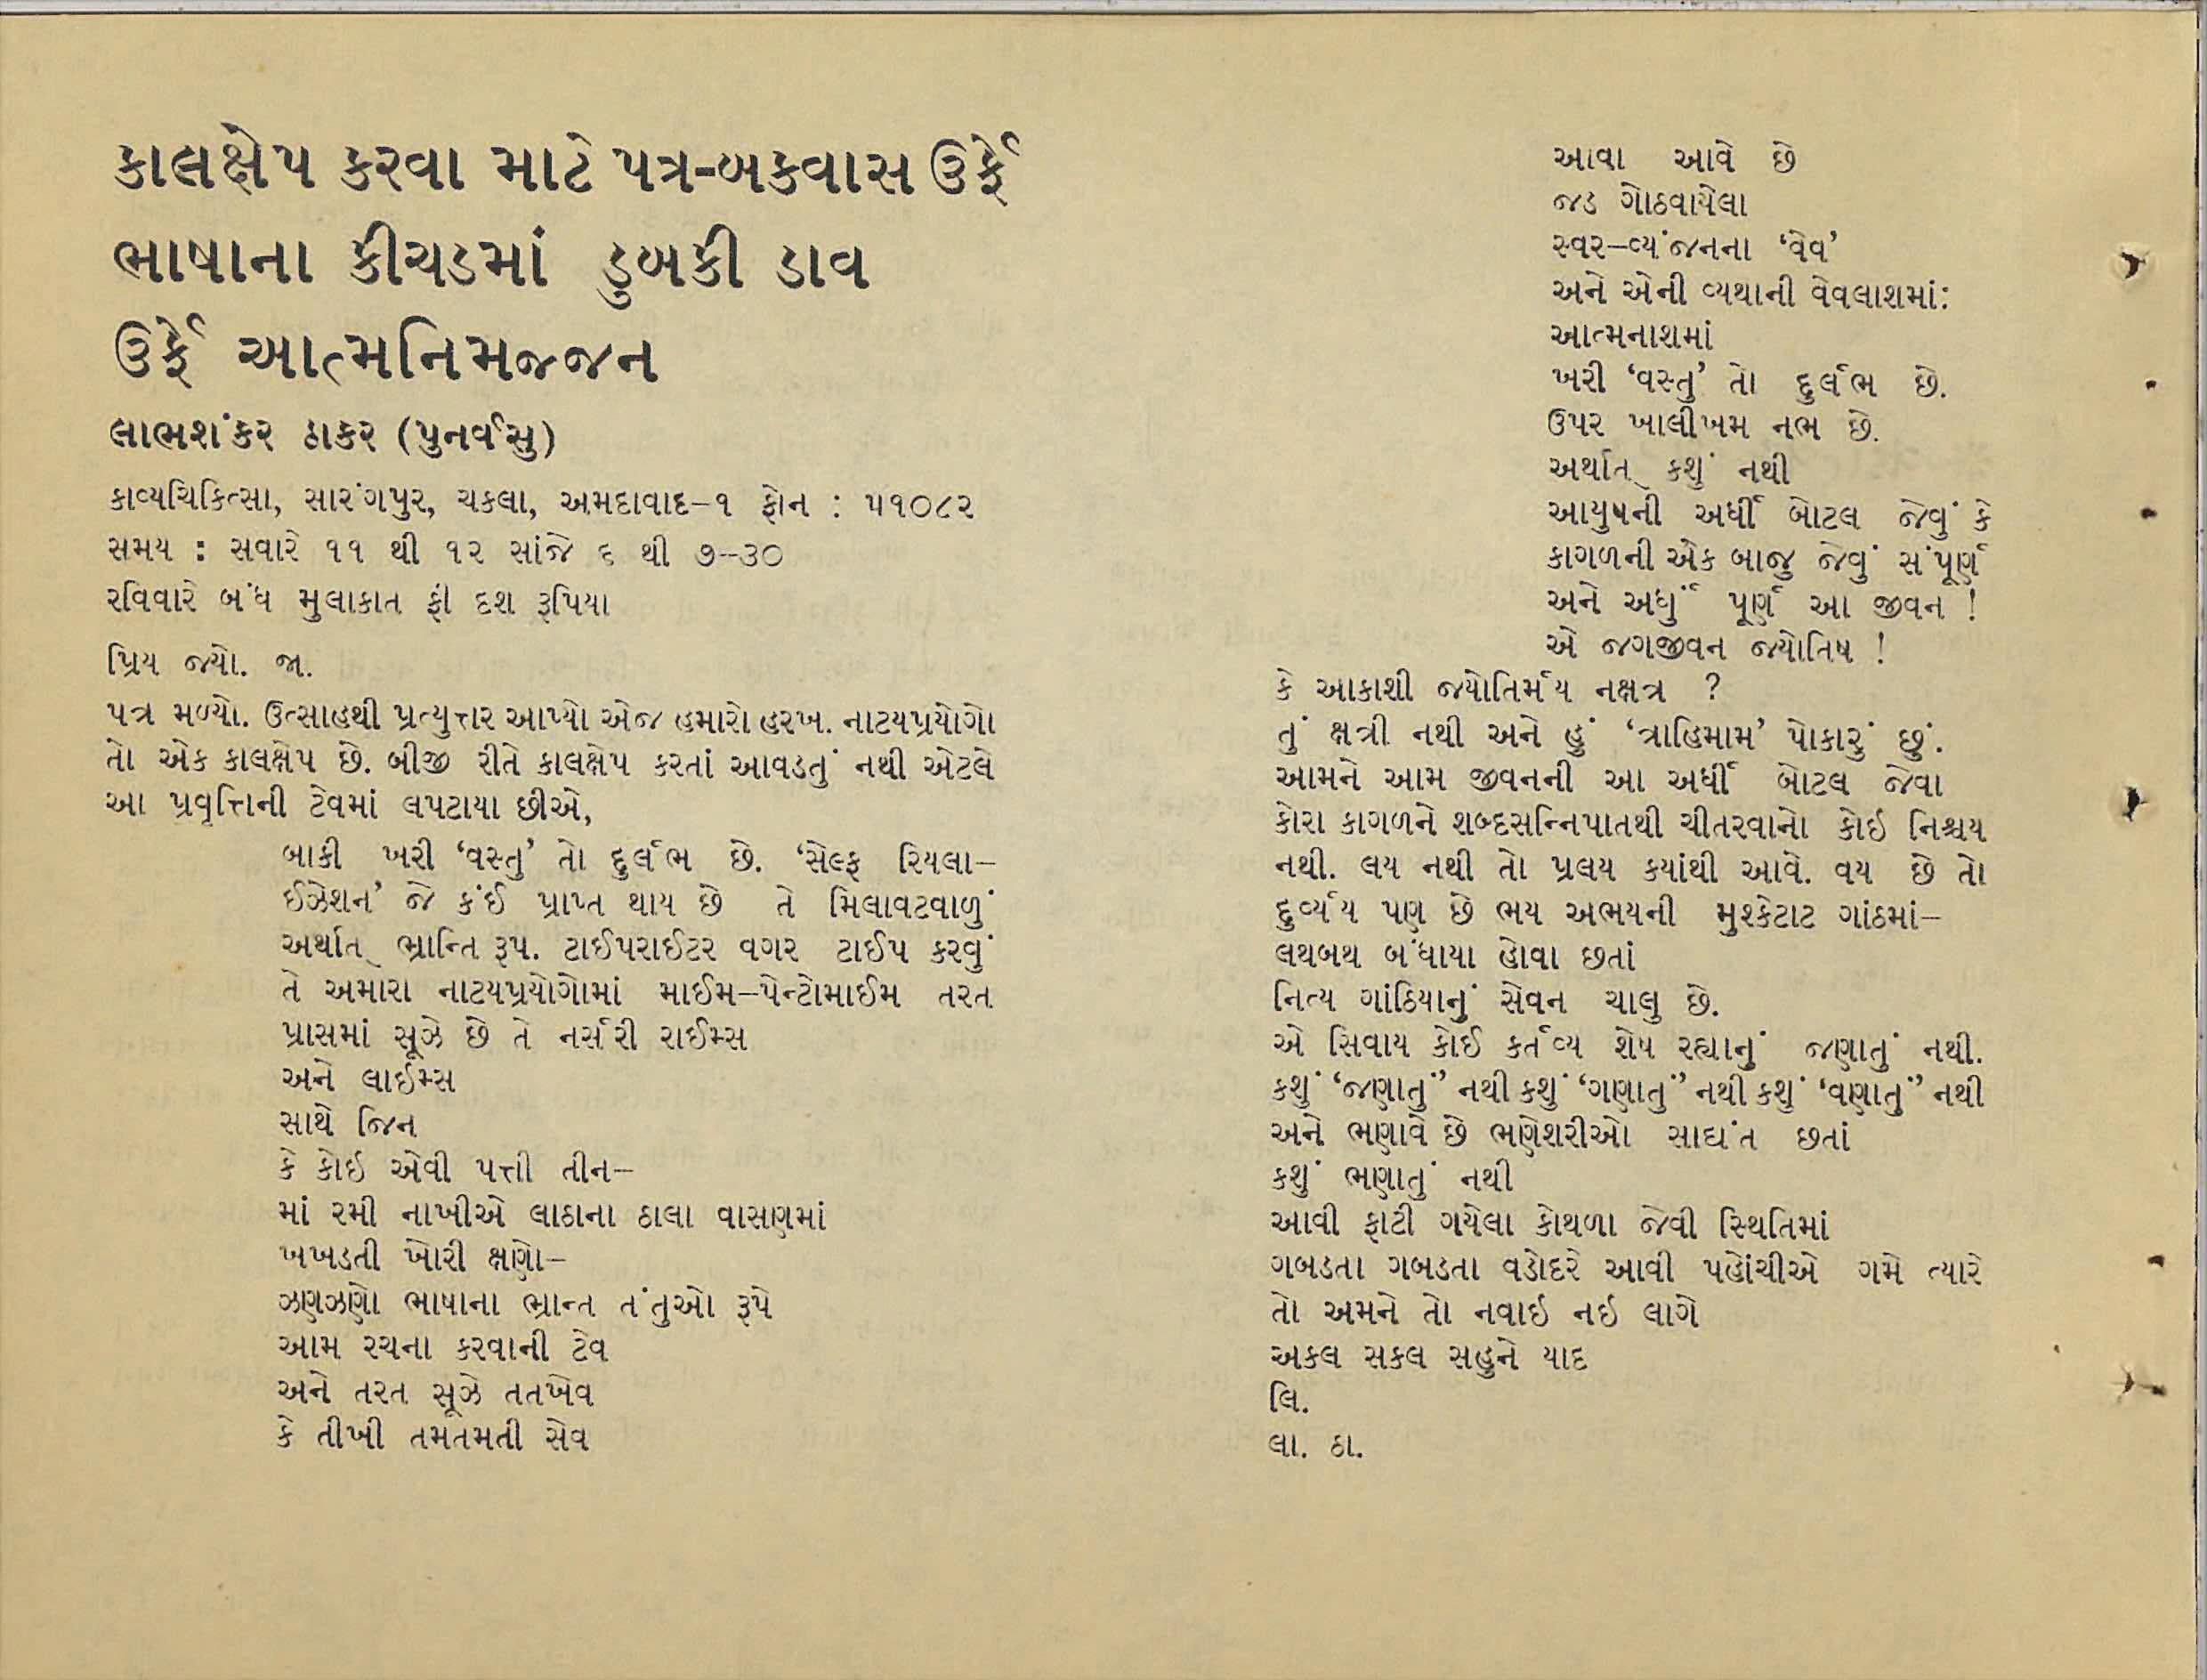 કાલક્ષેપ કરવા માટે પત્ર-બકવાસ ઉર્ફે
ભાષાના કીચડમાં ડુબકી ડાવ
ઉર્ફે આત્મનિમજ્જન
લાભશંકર ઠાકર (પુનર્વસુ)
કાવ્યચિકિત્સા, સારંગપુર, ચકલા, અમદાવાદ-૧ ફોન : ૫૧૦૮૨
સમય : સવારે ૧૧ થી ૧૨ સાંજે ૬ થી ૭-૩૦
રવિવારે બંધ મુલાકાત ફી દશ રૂપિયા
પ્રિય જ્યો. જા.
પત્ર મળ્યો. ઉત્સાહથી પ્રત્યુત્તર આપ્યો એજ હમારો હરખ. નાટયપ્રયોગો
તો એક કાલક્ષેપ છે. બીજી રીતે કાલક્ષેપ કરતાં આવડતું નથી એટલે
આ પ્રવૃત્તિની ટેવમાં લપટાયા છીએ,
બાકી ખરી ‘વસ્તુ’ તો દુર્લભ છે. ‘સેલ્ફ રિયલા-
ઈઝેશન’ જે કંઈ પ્રાપ્ત થાય છે તે મિલાવટવાળું
અર્થાત્ ભ્રાન્તિ રૂપ. ટાઈપરાઈટર વગર ટાઈપ કરવું
તે અમારા નાટયપ્રયોગોમાં માઈમ-પેન્ટોમાઈમ તરત
પ્રાસમાં સૂઝે છે તે નર્સરી રાઈમ્સ
અને લાઈમ્સ
સાથે જિન
કે કોઈ એવી પત્તી તીન-
માં રમી નાખીએ લાઠાના ઠાલા વાસણમાં
ખખડતી ખોરી ક્ષણો-
ઝણઝણો ભાષાના ભ્રાન્ત તંતુઓ રૂપે
આમ રચના કરવાની ટેવ
અને તરત સૂઝે તતખેવ
કે તીખી તમતમતી સેવ
આવા આવે છે
જડ ગોઠવાયેલા
સ્વર-વ્યંજનના ‘વેવ’
અને એની વ્યથાની વેવલાશમાં:
આત્મનાશમાં
ખરી ‘વસ્તુ’ તો દુર્લભ છે.
ઉપર ખાલીખમ નભ છે.
અર્થાત્ કશું નથી
આયુષની અર્ધી બોટલ જેવું કે
કાગળની એક બાજુ જેવું સંપૂર્ણ
અને અર્ધું પૂર્ણ આ જીવન !
એ જગજીવન જ્યોતિષ !
કે આકાશી જ્યોતિર્મય નક્ષત્ર ?
તું ક્ષત્રી નથી અને હું ‘ત્રાહિમામ’ પોકારું છું.
આમને આમ જીવનની આ અર્ધી બોટલ જેવા
કોરા કાગળને શબ્દસન્નિપાતથી ચીતરવાનો કોઈ નિશ્ચય
નથી. લય નથી તો પ્રલય કયાંથી આવે. વય છે તો
દુર્વ્યય પણ છે ભય અભયની મુશ્કેટાટ ગાંઠમાં-
લથબથ બંધાયા હોવા છતાં
નિત્ય ગાંઠિયાનું સેવન ચાલુ છે.
એ સિવાય કોઈ કર્તવ્ય શેષ રહ્યાનું જણાતું નથી.
કશું ‘જણાતું’ નથી કશું ‘ગણાતું’ નથી કશું ‘વણાતું’ નથી
અને ભણાવે છે ભણેશરીઓ સાદ્યંત છતાં
કશું ભણાતું નથી
આવી ફાટી ગયેલા કોથળા જેવી સ્થિતિમાં
ગબડતા ગબડતા વડોદરે આવી પહોંચીએ ગમે ત્યારે
તો અમને તો નવાઈ નઈ લાગે
અકલ સકલ સહુને યાદ
લિ.
લા. ઠા.